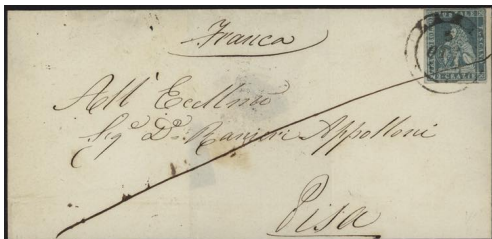 Franca
All' Eccellmo
Sigr Dr Ranieri Appolloni
Pisa